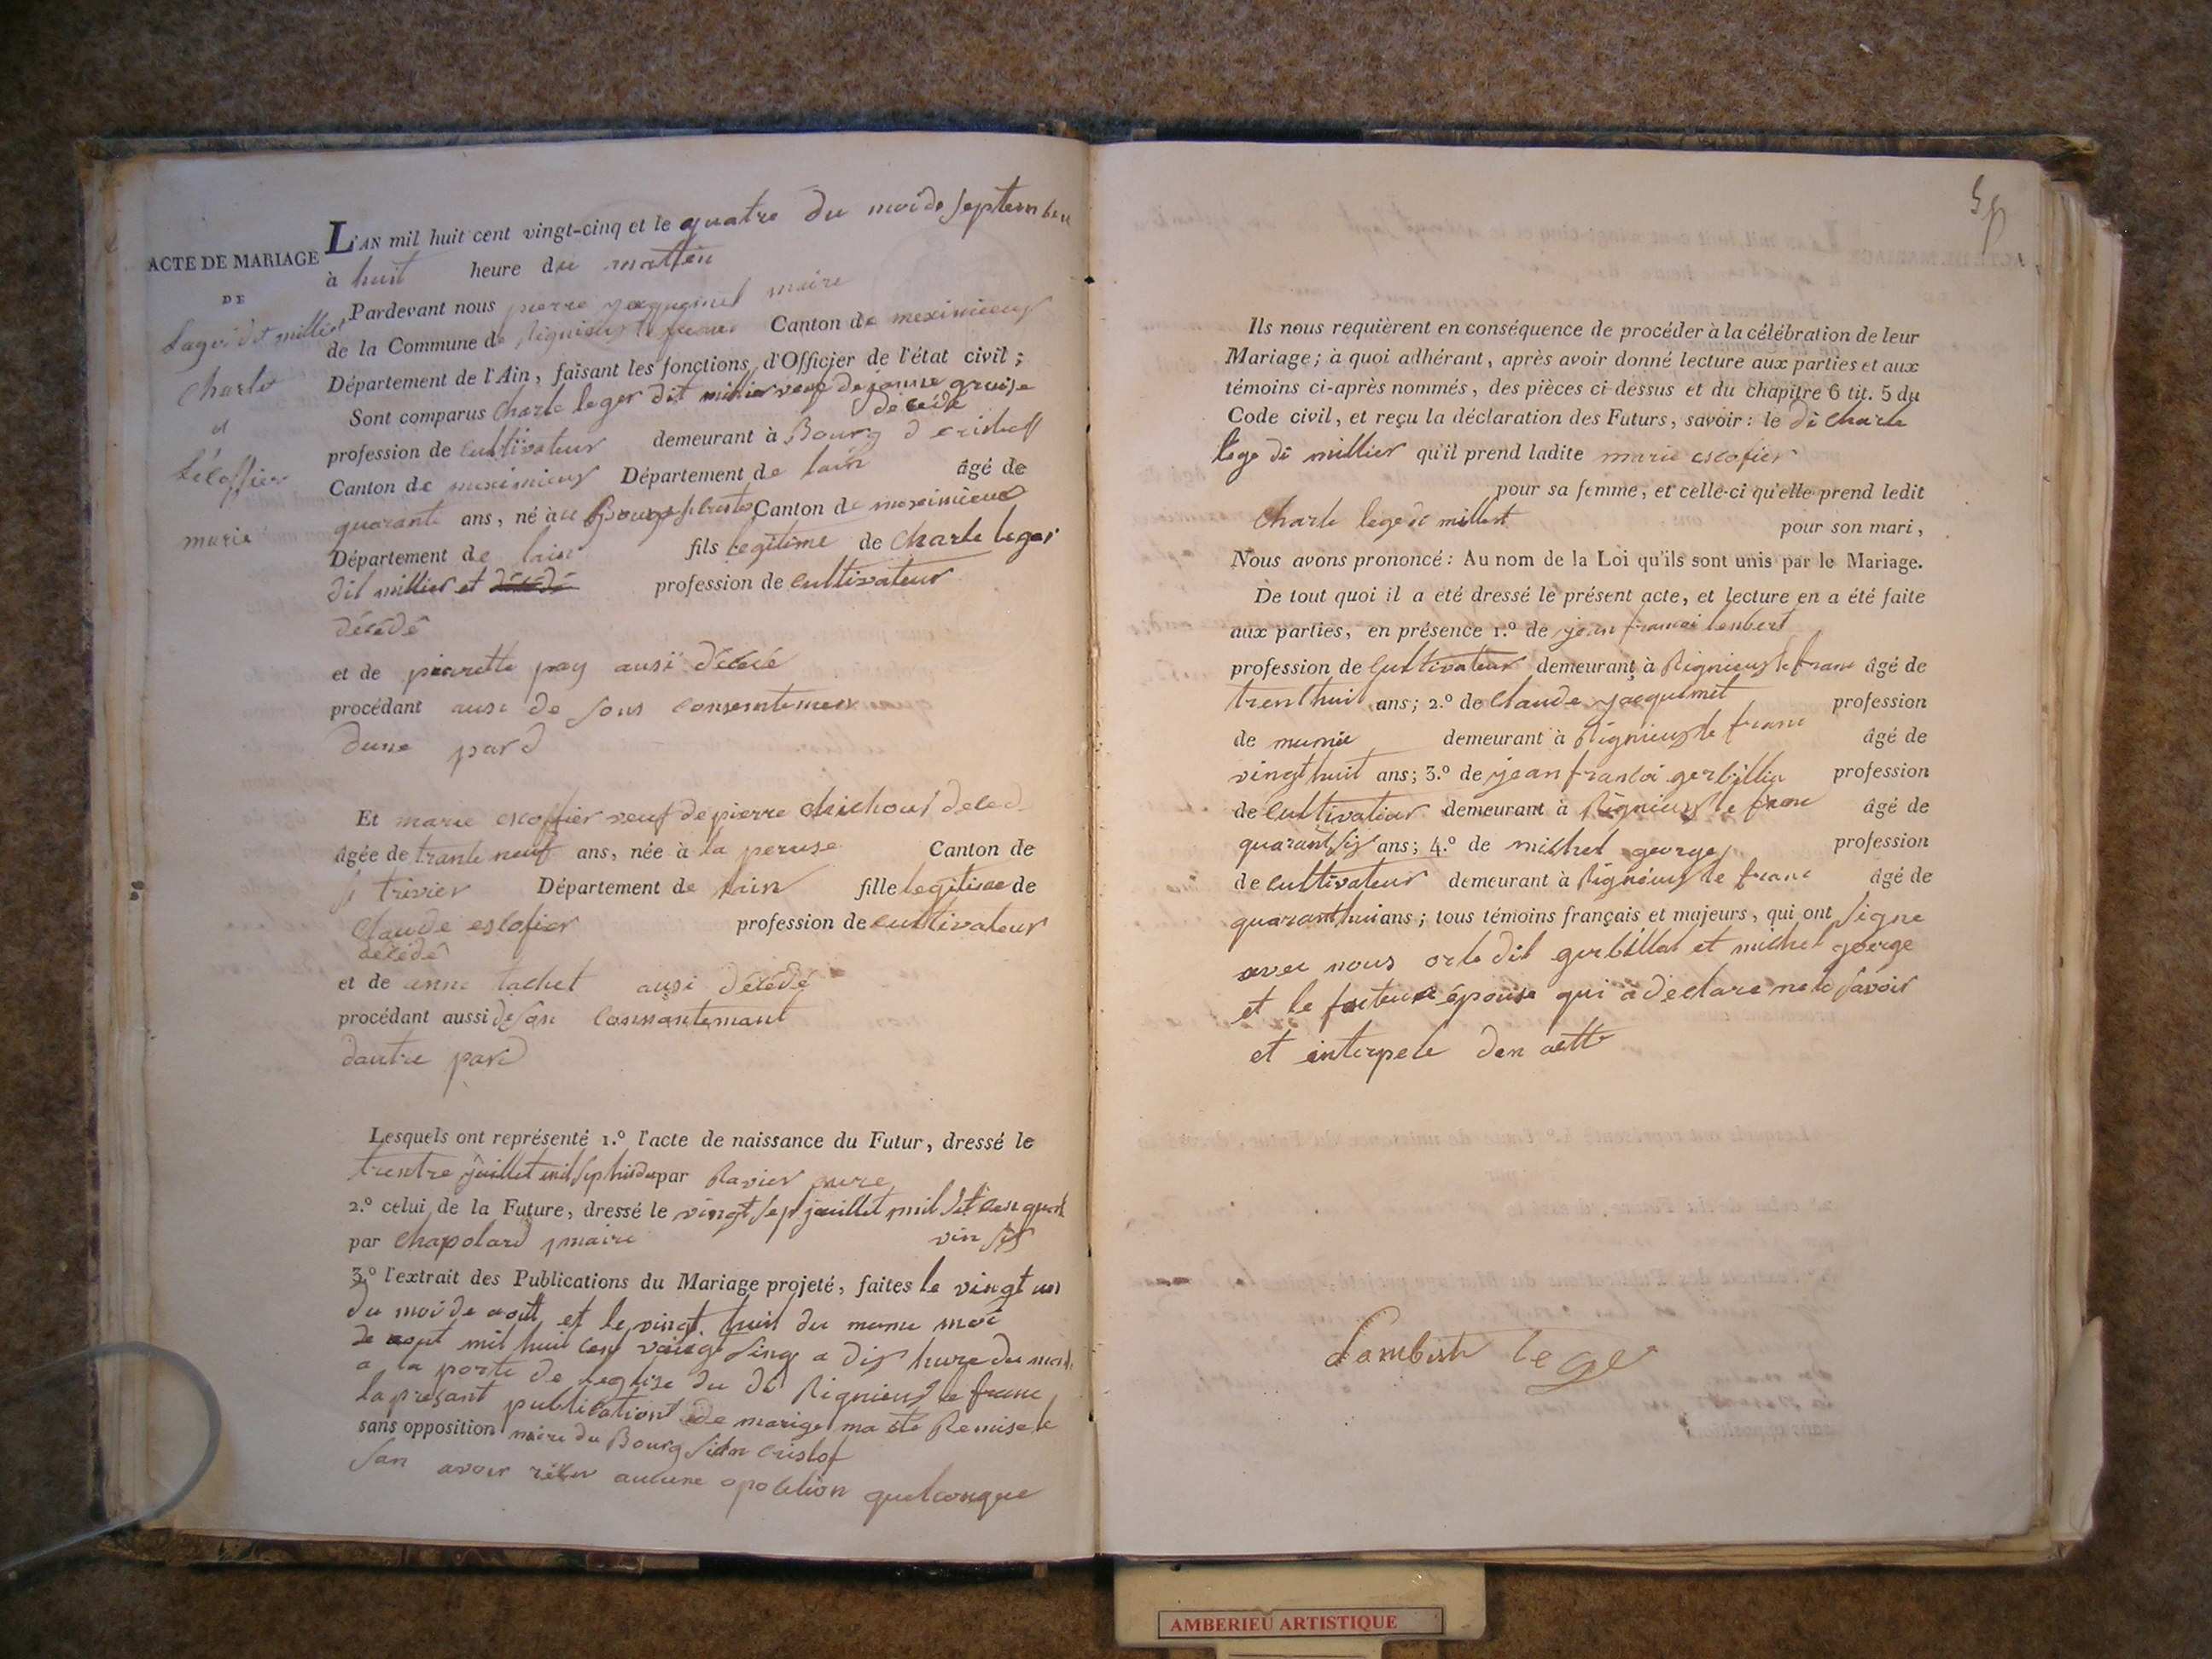 ACTE DE MARIAGE
DE
Lager dit millier
Charle
et
Escoffier
marie
L'AN mil huit cent vingt-cinq et le quatre du moi de septembre
à huit heure du mattin
Pardevant nous pierre jacquemet maire
de la Commune de Rignieux le franc Canton de meximieux
Département de l'Ain, faisant les fonctions d'Officier de l'état civil;
Sont comparus Charle leger dit millier veuf de jeanne gruise
décédé
profession de cultivateur demeurant à Bourg d cristoff
Canton de meximieux Département de lain âgé de
quarante ans, né au Bourg st cristo Canton de meximieux
Département de lain fils legitime de Charle leger
dit millier et décédé profession de cultivateur
décédé
et de pierrette pay ausi décédé
procédant ausi de sons consentemen
dune pard
Et marie escoffier veuf de pierre chichoud deced
âgée de trante neuf ans, née à la peruse Canton de
st trivier Département de lain fille legitime de
Claude escofier profession de cultivateur
décédé
et de anne tachet ausi décédé
procédant aussi de son consentemant
dautre pard
Lesquels ont représenté 1.º l'acte de naissance du Futur, dressé le
trentre juillet mil sep par Ravier cure
2.º celui de la Future, dressé le vingt sep juillet mil set cen quat
par Chapolard maire vin sis
3.º l'extrait des Publications du Mariage projeté, faites le vingt un
du moi de aout et le vingt huit du meme moi
de aout mil huit cen vaingt sing a dis hure du mati
a la porte de leglise du dit Rignieux le franc
la presant publicationt de marige ma ete Remise le
sans opposition maire du Bourg sidn cristof
san avoir recu aucune oposition quelconque
59
Ils nous requièrent en conséquence de procéder à la célébration de leur
Mariage; à quoi adhérant, après avoir donné lecture aux parties et aux
témoins ci-après nommés, des pièces ci-dessus et du chapitre 6 tit. 5 du
Code civil, et reçu la déclaration des Futurs, savoir: le di Charle
lege di millier qu'il prend ladite marie escofier
pour sa femme, et celle-ci qu'elle prend ledit
Charle lege di milliet pour son mari,
Nous avons prononcé: Au nom de la Loi qu'ils sont unis par le Mariage.
De tout quoi il a été dressé le présent acte, et lecture en a été faite
aux parties, en présence 1.º de jean francoi lenbert
profession de cultivateur demeurant à Rignieux le franc âgé de
trent huit ans; 2.º de Claude jacquemet profession
de munie demeurant à Rignieux le franc âgé de
vingt huit ans; 3.º de jean francoi gerbillia profession
de cultivateur demeurant à Rignieux le franc âgé de
quarant sis ans; 4.º de michel george profession
de cultivateur demeurant à Rignieux le franc âgé de
quarant hui ans; tous témoins français et majeurs, qui ont signe
avec nous or le dit gerbillat et michel george
et le futeure épouse qui a declare ne le savoir
et interpele den aette
Lambert lege
AMBERIEU ARTISTIQUE